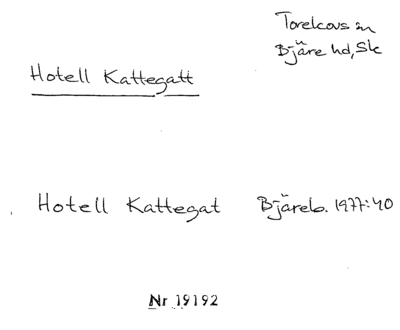 Torekovs sn
Bjäre hd, Sk
Hotell Kattegatt
Hotell Kattegat Bjäreb. 1977:40
Nr 19192